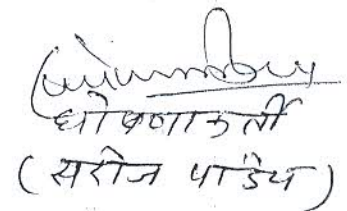 घोषणाकर्ता
(सरोज पांडेय)